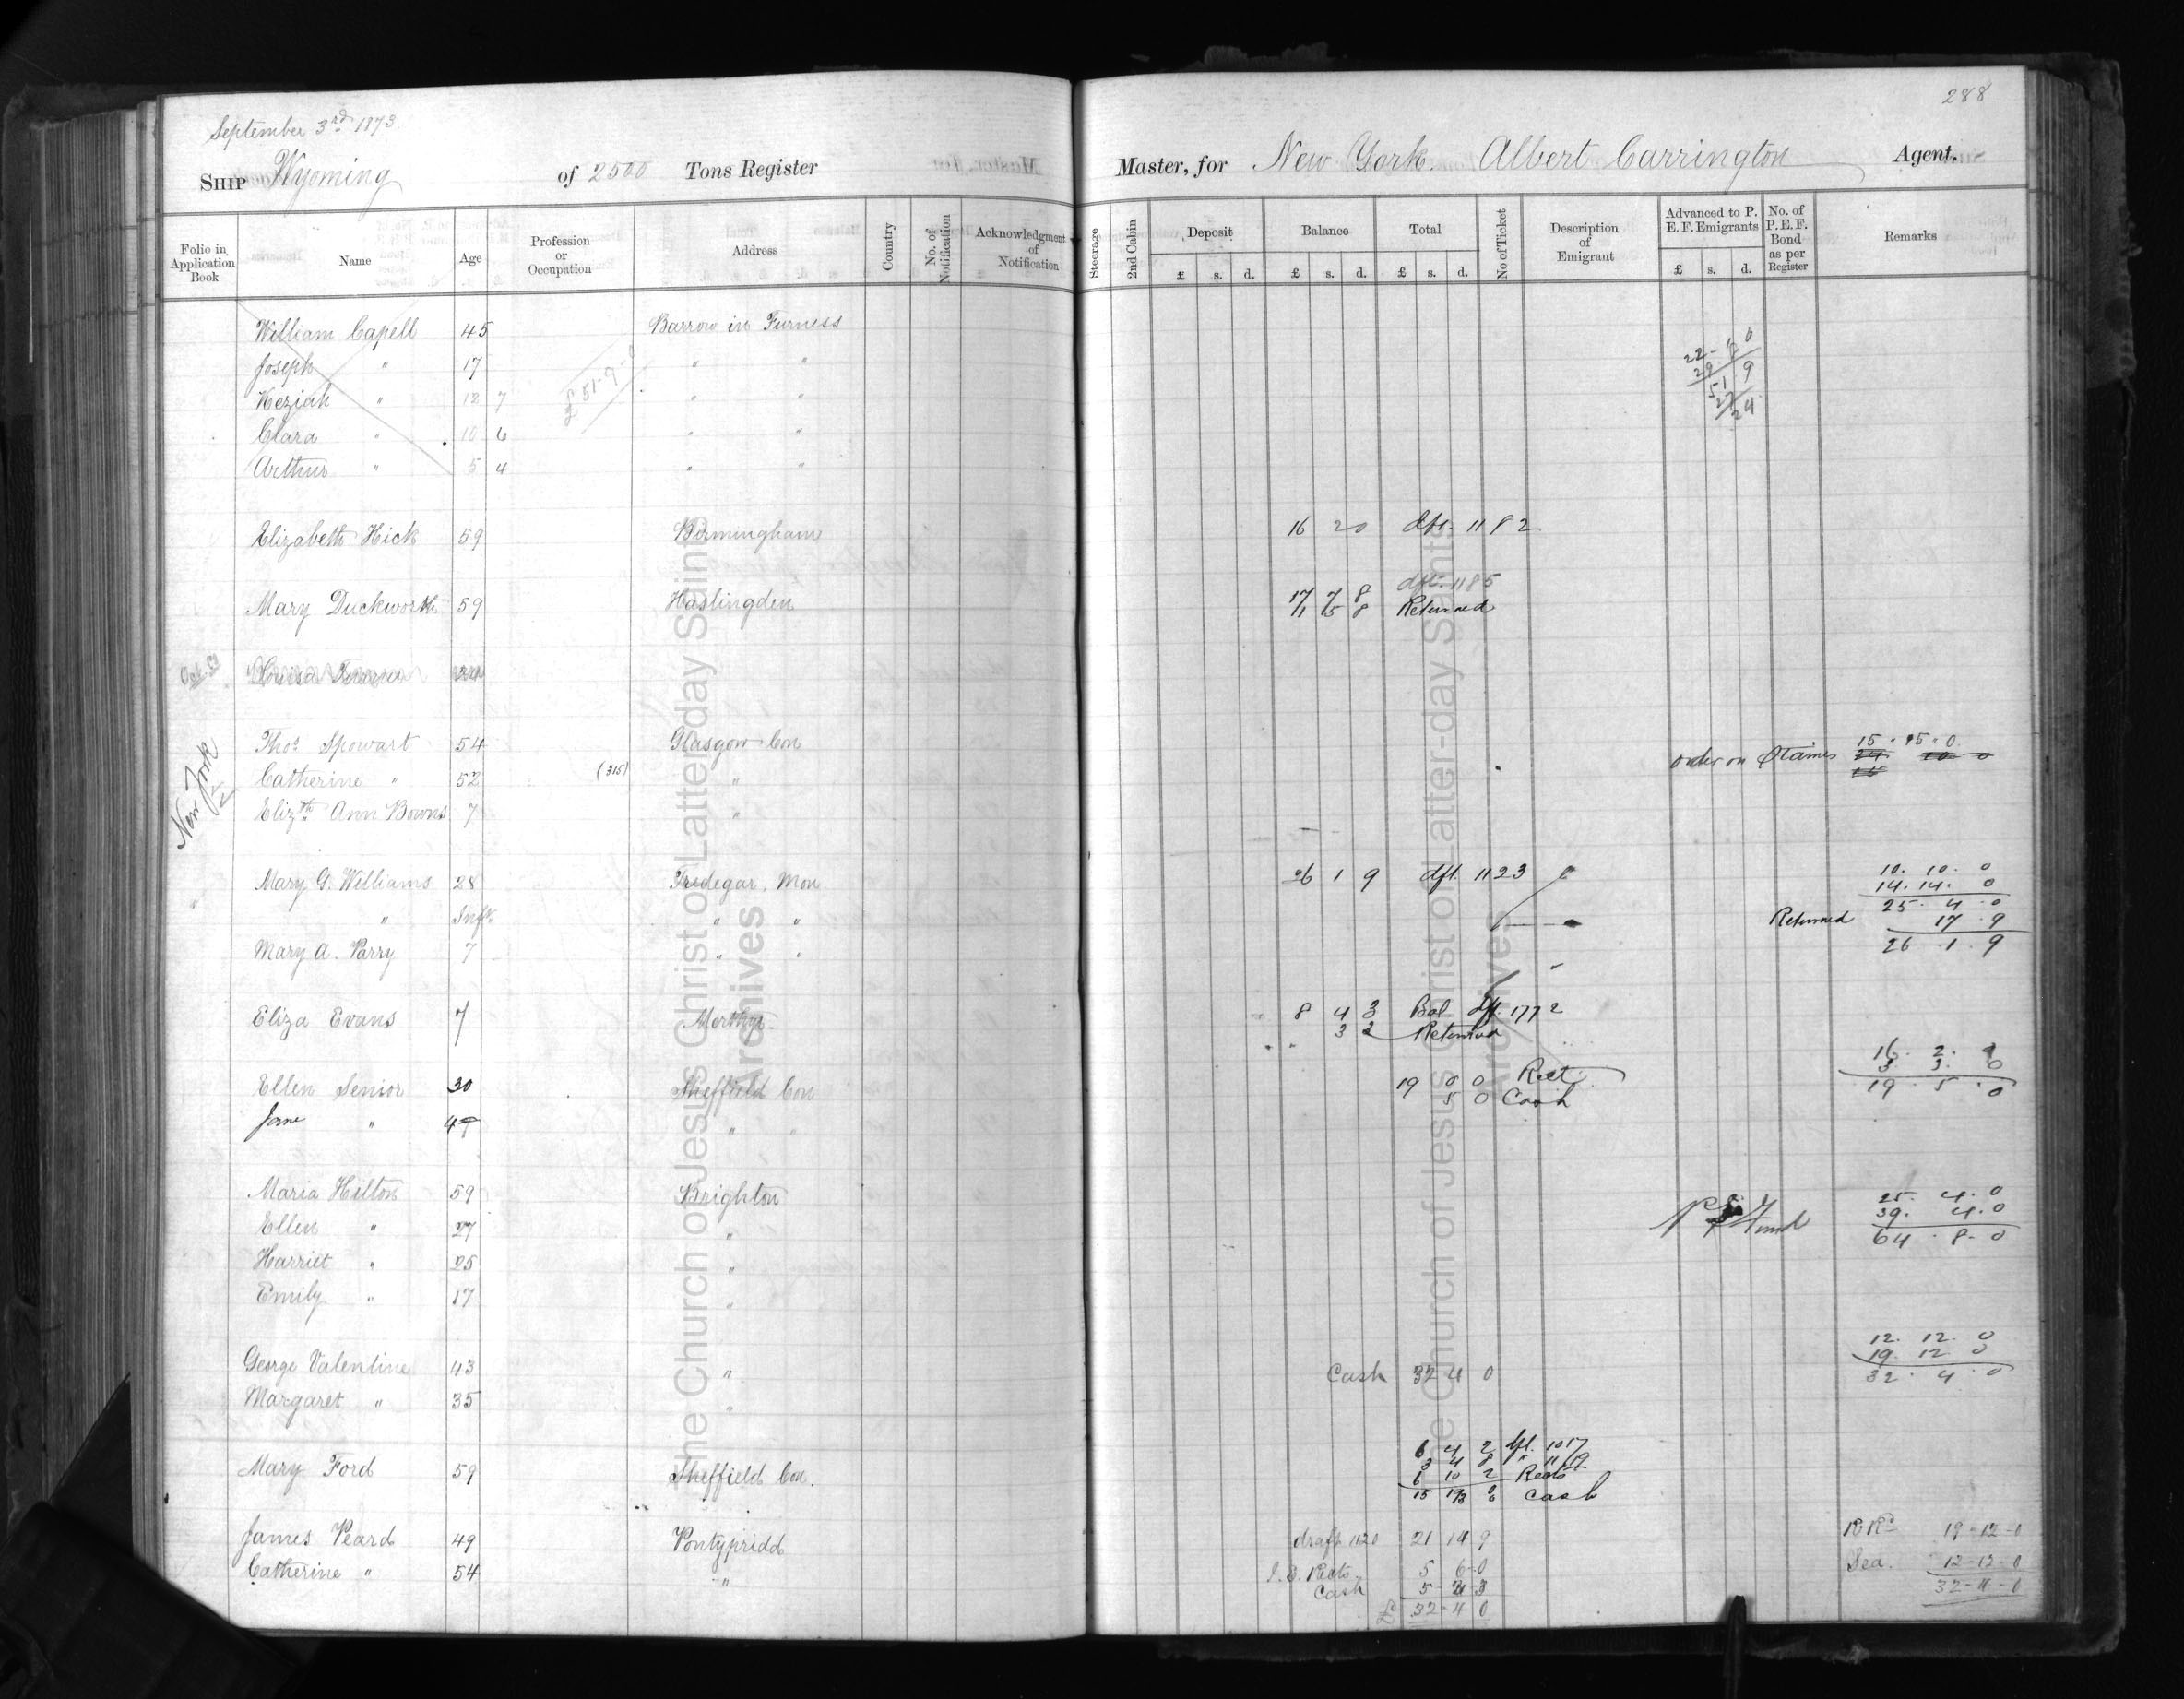 288
September 3rd 1873
SHIP Wyoming of 2500 Tons Register Master, for New York. Albert Carrington Agent.
Folio in Application Book Name Age Profession or Occupation Address Country No. of Notification Acknowledgment of Notification Steerage 2nd Cabin Deposit Balance Total No of Ticket Description of Emigrant Advanced to P. E. F. Emigrants No. of P. E. F. Bond as per Register Remarks
£ s. d. £ s. d. £ s. d. £ s. d.
William Capell 45 Barrow in Furness
Joseph " 17 " "
Keziah " 12 7 £51-9-0 " "
Clara " 10 6 " "
Arthur " 5 4 " "
Elizabeth Hick 59 Birmingham 16 20 dft. 1182
dft. 1185
Mary Duckworth 59 Haslingden 17 7 8
1 15 8 Returned
Louisa
Thos. Spowart 54 Glasgow Con 15 . 15 . 0
New York Catherine " 52 (315) " order on Staines
Elizth Ann Bowns 7 "
Mary G. Williams 28 Tredegar, Mon 26 1 9 dft. 1123 10. 10. 0
14. 14. 0
" Inft. " " 25. 4. 0
Returned 17. 9
Mary A. Parry 7 " " 26. 1. 9
Eliza Evans 7 Merthyr 8 4 3 Bal dft. 1772
3 2 Returned
Ellen Senior 30 Sheffield Con 19 0 0 Rect
5 0 Cash
3. 3. 0
19. 5. 0
Jane " 47 " "
Maria Hilton 59 Brighton 25. 4. 0
39. 4. 0
Ellen " 27 " P E Fund 64. 8. 0
Harriet " 25 "
Emily " 17 "
12. 12. 0
19. 12 0
George Valentine 43 " Cash 32 4 0 32. 4. 0
Margaret " 35 "
6 4 2 dft. 1017
3 4 8 " 1119
Mary Ford 59 Sheffield Con. 6 10 2 Recets
Cash
James Peard 49 Pontypridd draft 1120 21 14 9 R Rd 19-12-0
Catherine " 54 " I. E. Rects. 5 6-0 Sea. 12-12-0
Cash 32-4-0
£ 32-4 0